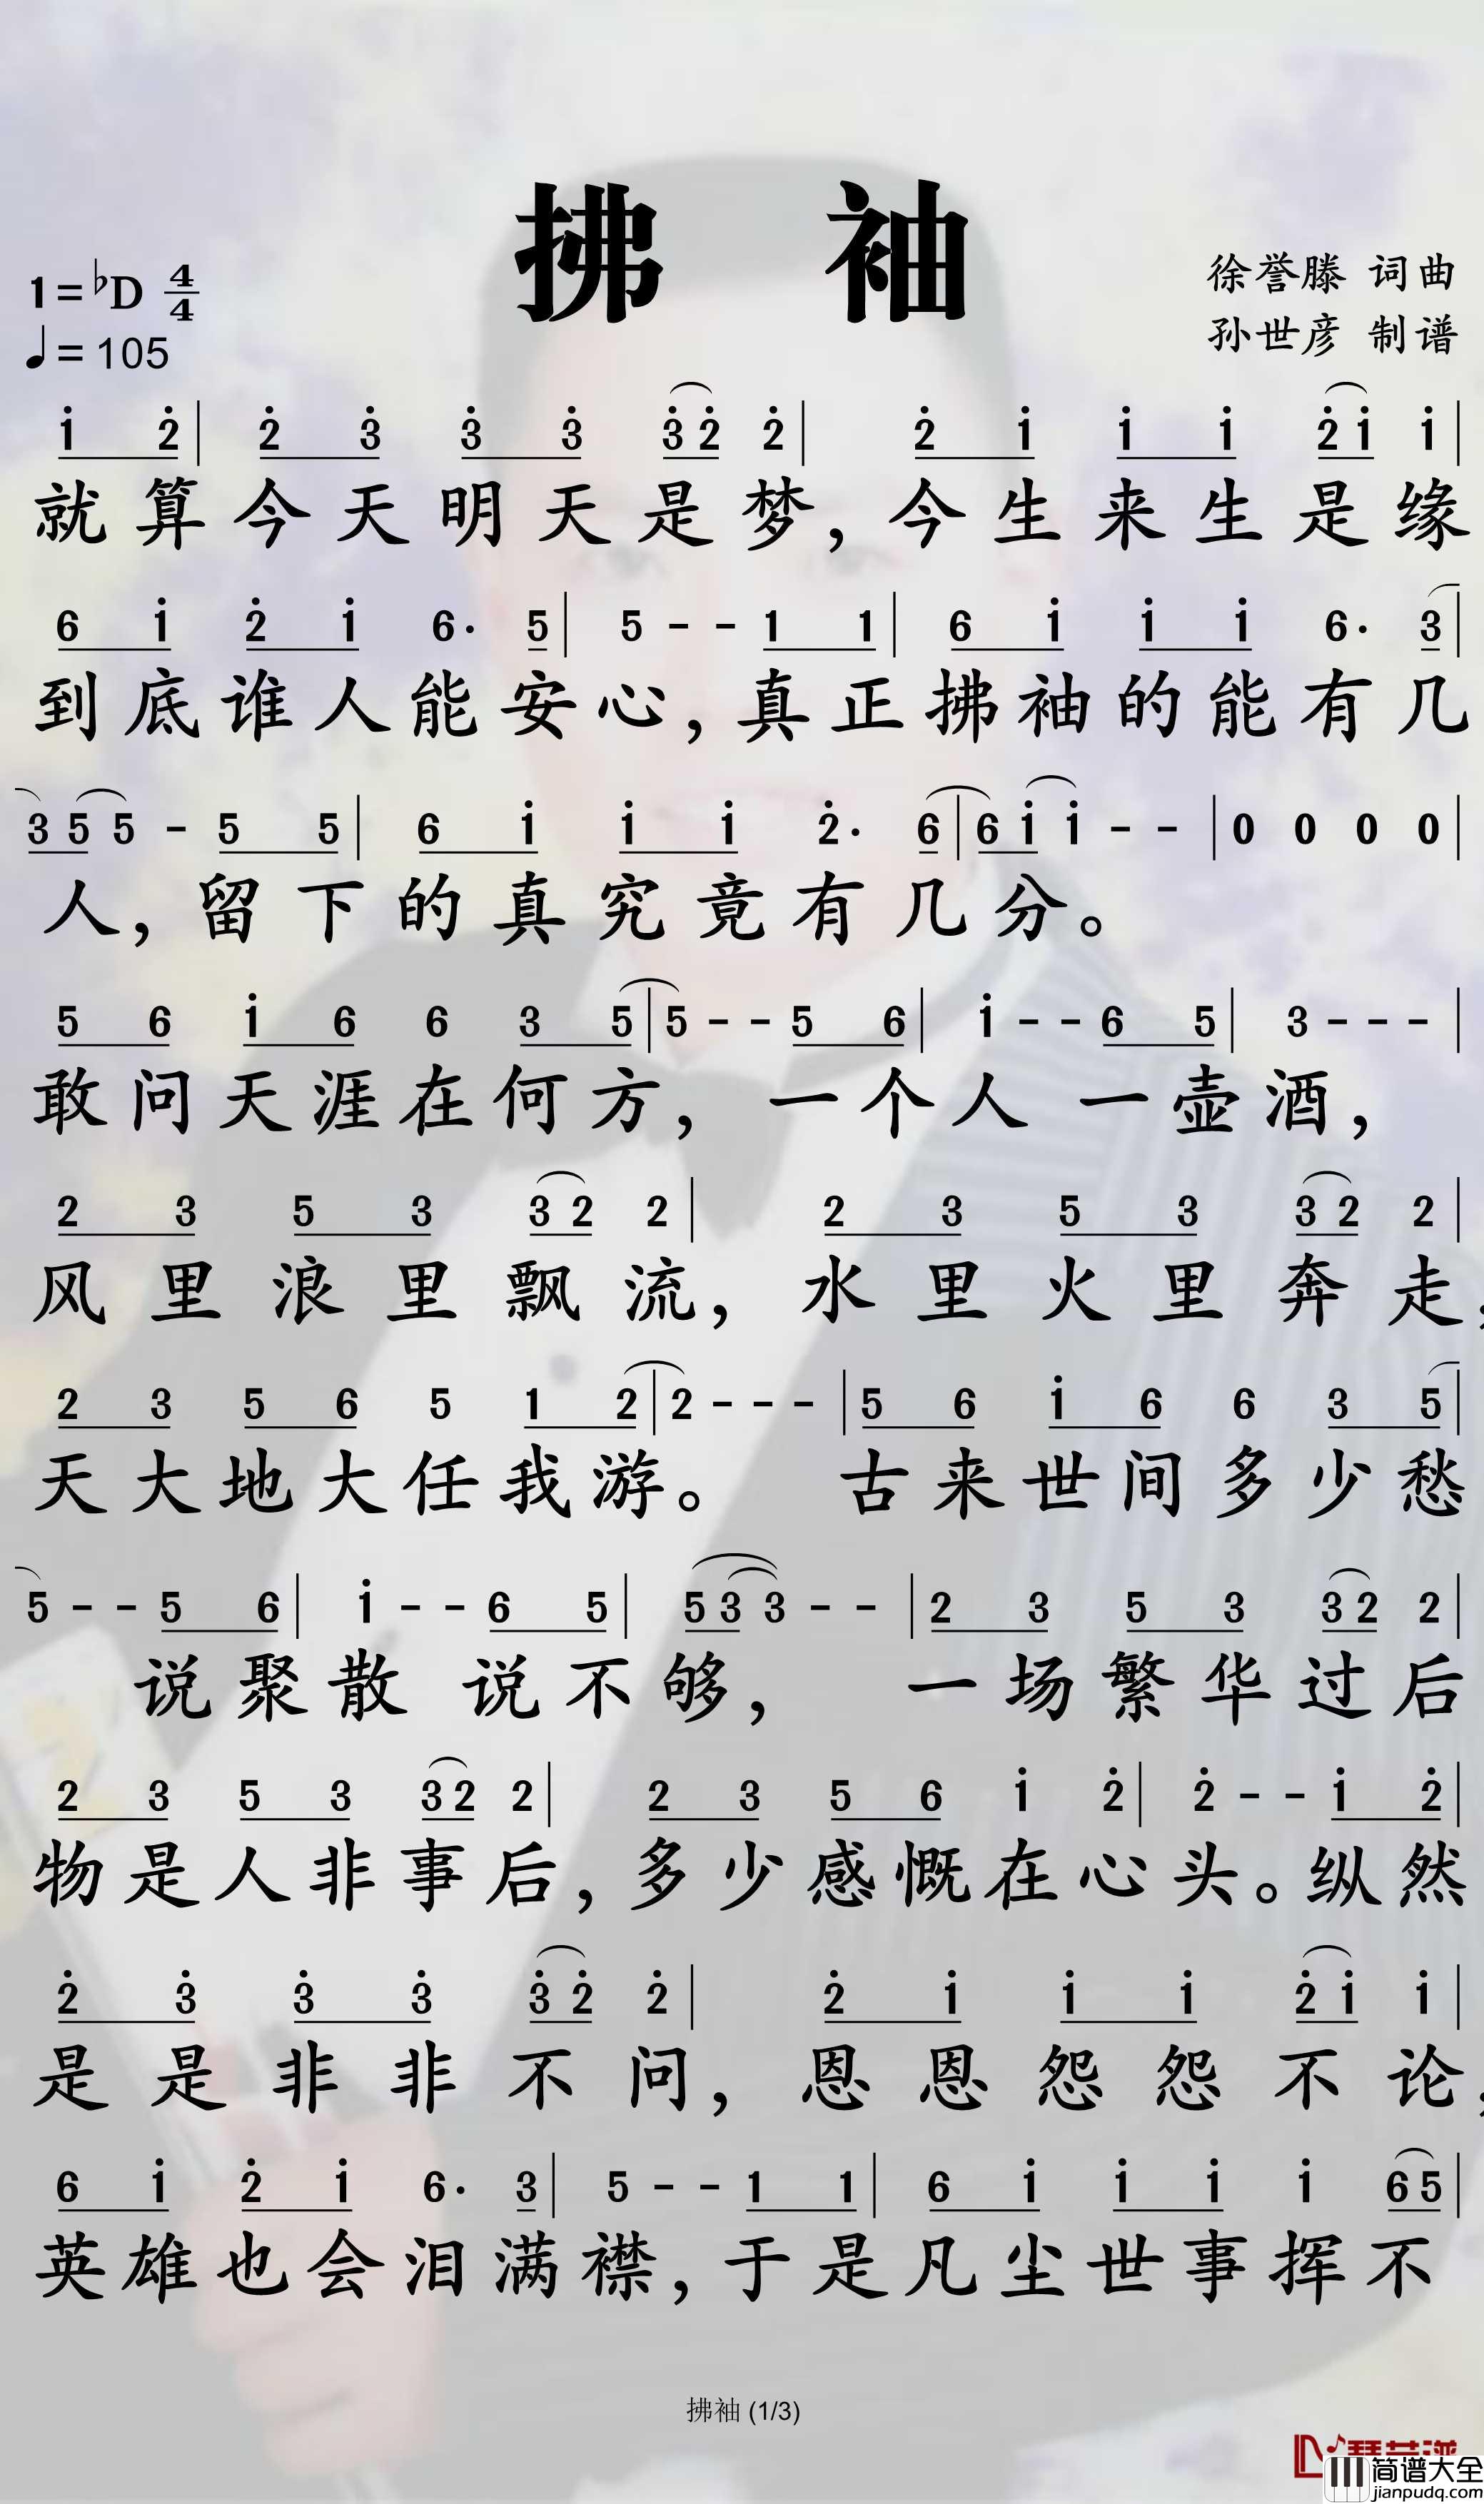 拂 袖
1=♭D 4/4
♩=105
徐誉滕 词曲
孙世彦 制谱
i 2̇ | 2̇ 3̇ 3̇ 3̇ 3̇ 2̇ 2̇ | 2̇ i i i 2̇ i i |
就算今天明天是梦，今生来生是缘
6 i 2̇ i 6· 5 | 5 - - 1 1 | 6 i i i 6· 3 |
到底谁人能安心，真正拂袖的能有几
3 5 5 - 5 5 | 6 i i i 2̇· 6 | 6 i i - - | 0 0 0 0 |
人，留下的真究竟有几分。
5 6 i 6 6 3 5 | 5 - - 5 6 | i - - 6 5 | 3 - - - |
敢问天涯在何方，一个人一壶酒，
2 3 5 3 3 2 2 | 2 3 5 3 3 2 2 |
风里浪里飘流，水里火里奔走，
2 3 5 6 5 1 2 | 2 - - - | 5 6 i 6 6 3 5 |
天大地大任我游。 古来世间多少愁
5 - - 5 6 | i - - 6 5 | 5 3 3 - - | 2 3 5 3 3 2 2 |
说聚散说不够， 一场繁华过后
2 3 5 3 3 2 2 | 2 3 5 6 i 2̇ | 2̇ - - i 2̇ |
物是人非事后，多少感慨在心头。纵然
2̇ 3̇ 3̇ 3̇ 3̇ 2̇ 2̇ | 2̇ i i i 2̇ i i |
是是非非不问，恩恩怨怨不论，
6 i 2̇ i 6· 3 | 5 - - 1 1 | 6 i i i i 6 5 |
英雄也会泪满襟，于是凡尘世事挥不
拂袖 (1/3)
简谱大全
jianpudq.com